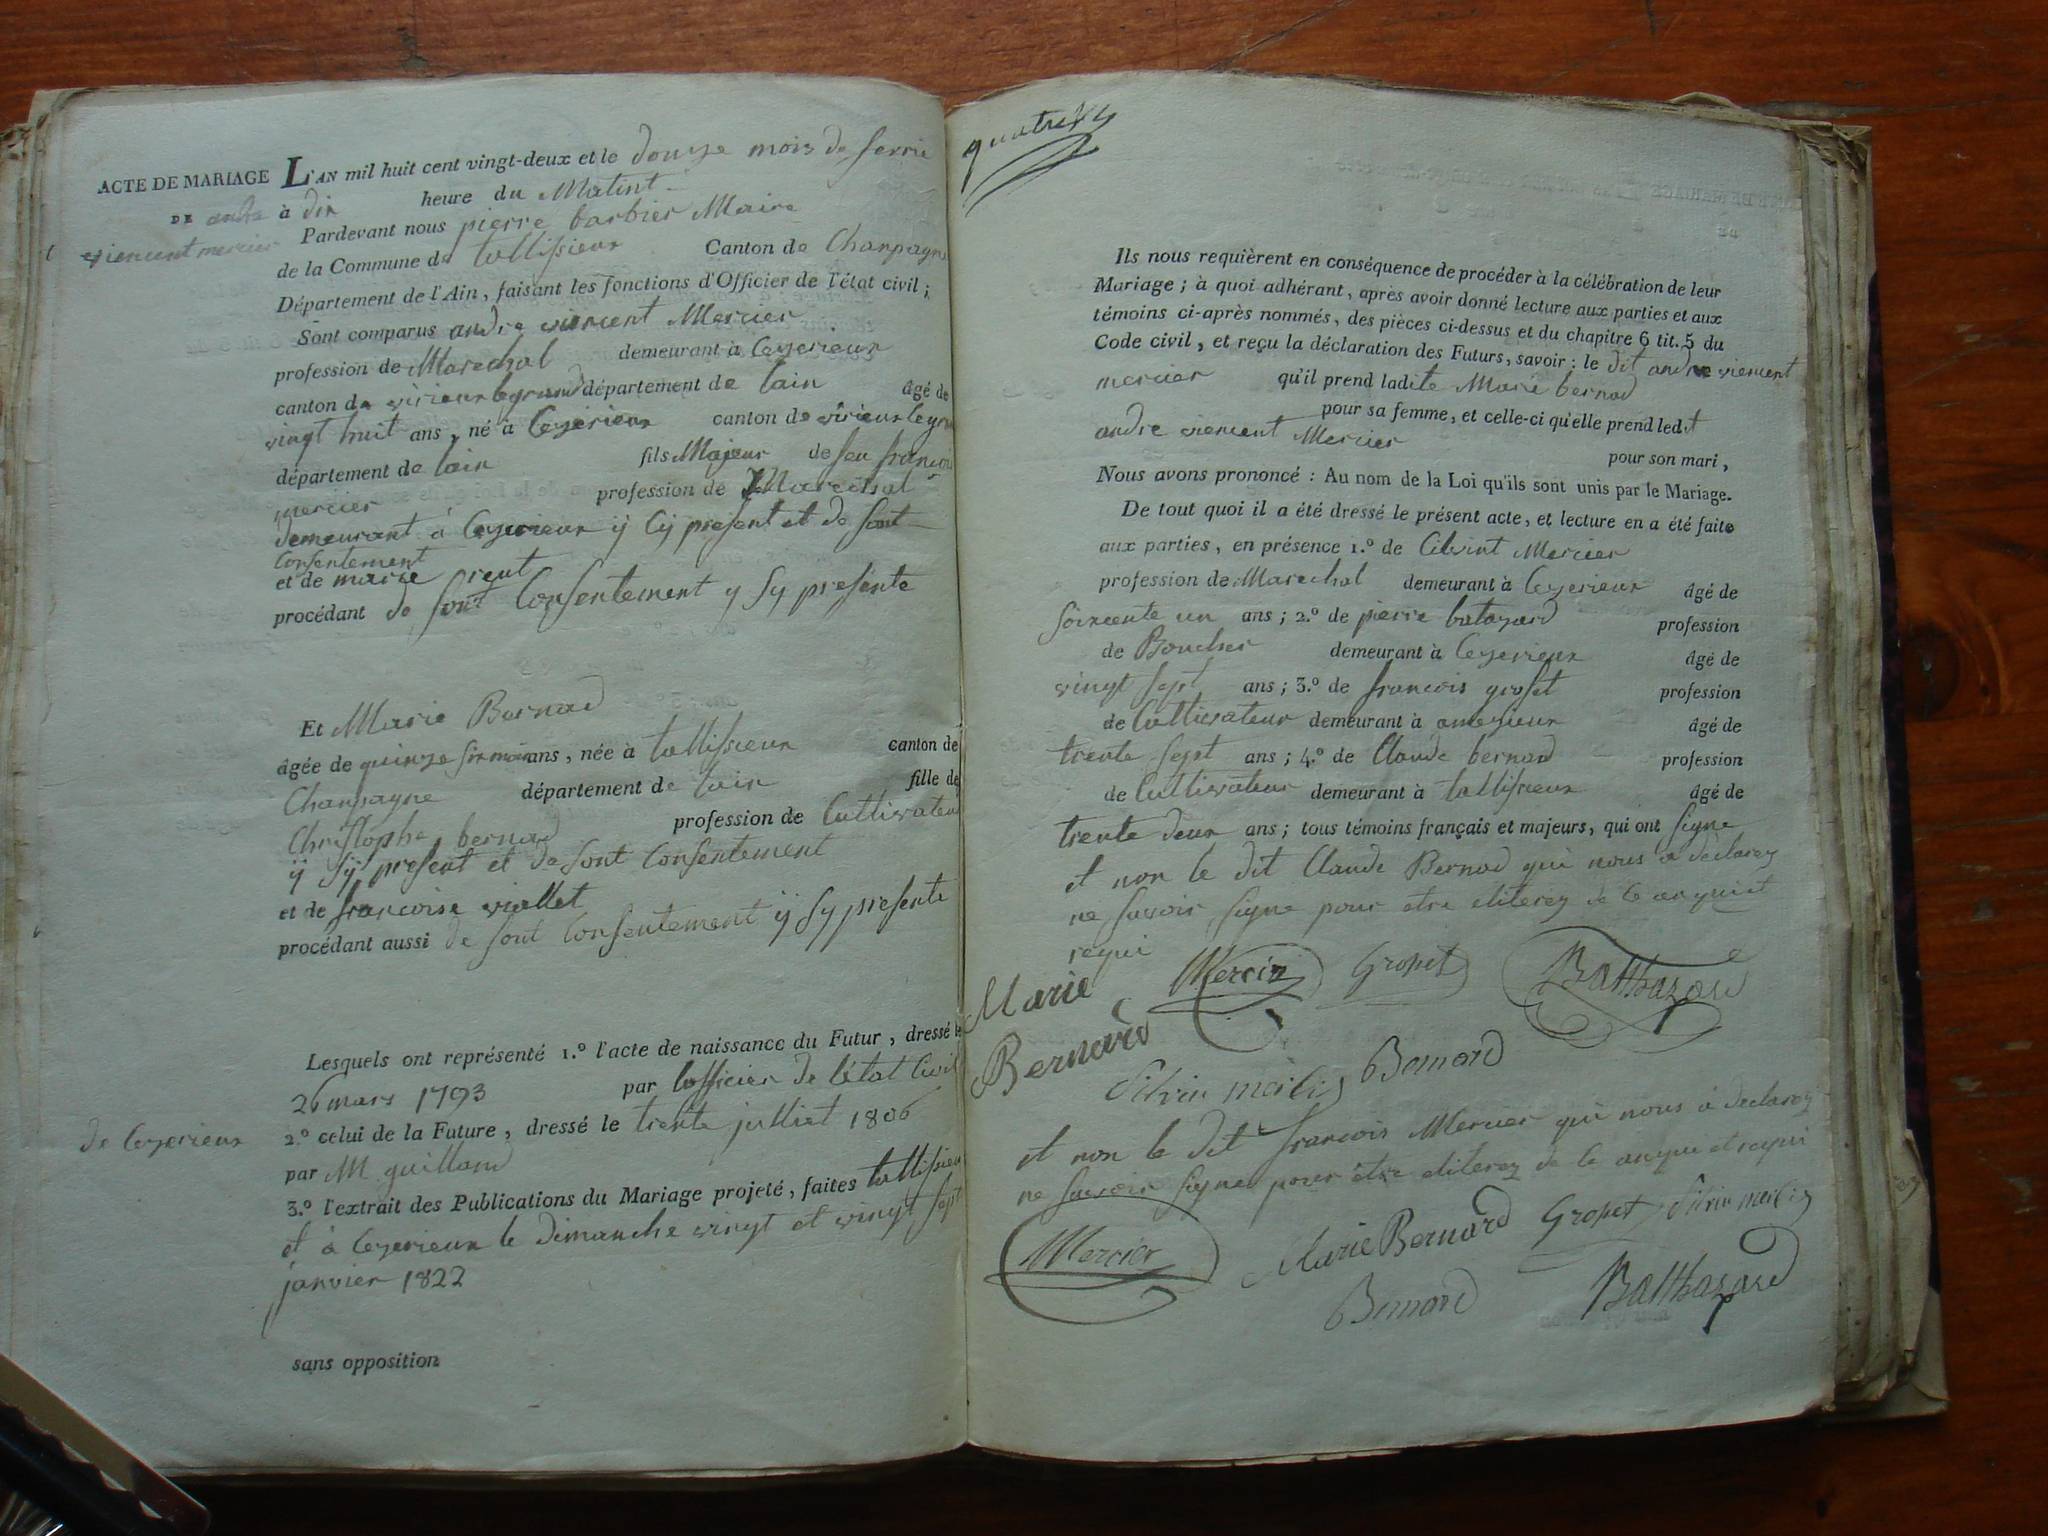 ACTE DE MARIAGE L'AN mil huit cent vingt-deux et le douze mois de fevrie
DE andre à dix heure du Matint
viencent mercier Pardevant nous pierre barbier Maire
de la Commune de tallissieux Canton de Chanpagne
Département de l'Ain, faisant les fonctions d'Officier de l'état civil;
Sont comparus andre viencent Mercier
profession de Marechal demeurant à Ceyzerieux
canton de virieux legrand département de lain âgé de
vingt huit ans, né à Ceyzerieux canton de virieux legra
département de lain fils Majeur de feu francois
mercier profession de Marechal
demeurant à Ceyzerieux ÿ Cy present et de sont
Consentement
et de marie
procédant de sont Consentement y sy presente
Et Marie Bernad
âgée de quinze six mois ans, née à tallissieux canton de
Chanpagne département de lain fille de
Christophe bernad profession de Cultivateur
ÿ sÿ present et de sont Consentement
et de francoise viollet
procédant aussi de sont Consentement ÿ sy presente
Lesquels ont représenté 1.º l'acte de naissance du Futur, dressé le
26 mars 1793 par lofficier de létat Civil
de Ceyzerieux 2.º celui de la Future, dressé le trente julliet 1806
par M guilland
3.º l'extrait des Publications du Mariage projeté, faites tallissieu
et à Ceyzerieux le dimanche vingt et vingt sept
janvier 1822
sans opposition
Ils nous requièrent en conséquence de procéder à la célébration de leur
Mariage; à quoi adhérant, après avoir donné lecture aux parties et aux
témoins ci-après nommés, des pièces ci-dessus et du chapitre 6 tit. 5 du
Code civil, et reçu la déclaration des Futurs, savoir: le dit andre viencent
mercier qu'il prend ladite Marie bernad
pour sa femme, et celle-ci qu'elle prend ledt
andre viencent Mercier pour son mari,
Nous avons prononcé: Au nom de la Loi qu'ils sont unis par le Mariage.
De tout quoi il a été dressé le présent acte, et lecture en a été faite
aux parties, en présence 1.º de Cilvint Mercier
profession de Marechal demeurant à Ceyzerieux âgé de
soixcente un ans; 2.º de pierre batazard profession
de Boucher demeurant à Ceyzerieux âgé de
vingt sept ans; 3.º de francois grosset profession
de Cultivateur demeurant à amezieux âgé de
trente sept ans; 4.º de Claude bernad profession
de Cultivateur demeurant à tallissieux âgé de
trente deux ans; tous témoins français et majeurs, qui ont signe
et non le dit Claude Bernad qui nous a declarez
ne savoir signe pour etre eliterez de ce
requi
Marie Mercier Gropet Balthazard
Bernard
Bernard
et non le dit francois Mercier qui nous a declarez
ne savoir signe pour être eliterez de ce
Mercier Marie Bernard Gropet
Bernard Balthazard